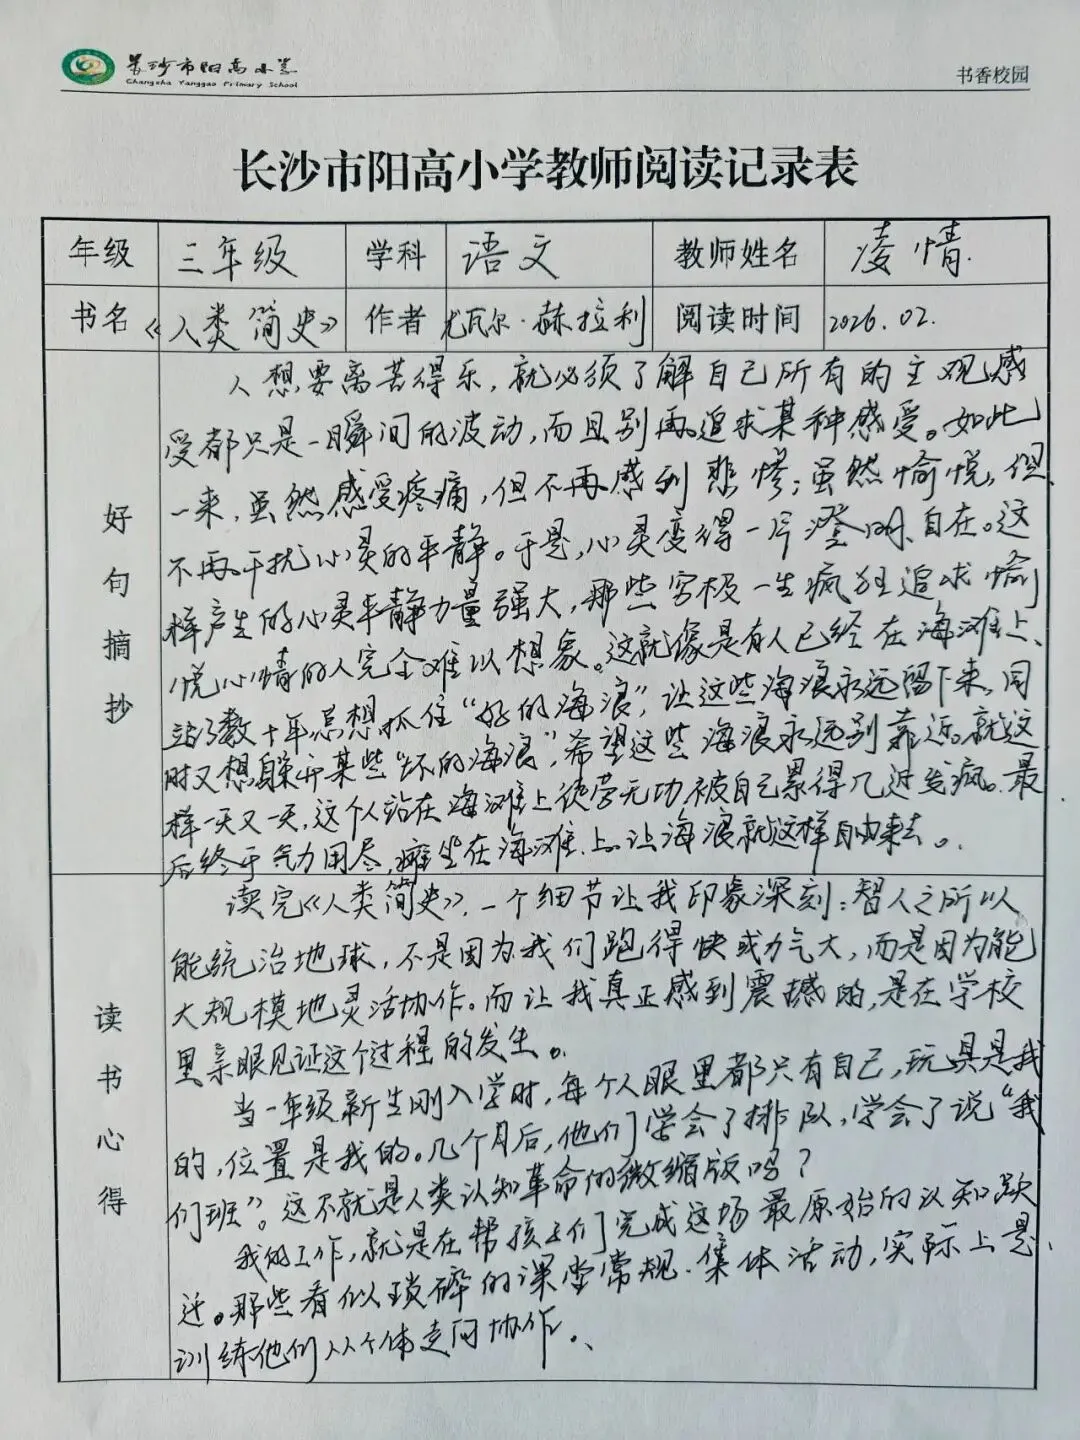 长沙市阳高小学
Changsha Yanggao Primary School
书香校园
长沙市阳高小学教师阅读记录表
年级 三年级 学科 语文 教师姓名 凌情
书名 《人类简史》 作者 尤瓦尔·赫拉利 阅读时间 2026.02.
好句摘抄
人想要离苦得乐，就必须了解自己所有的主观感
受都只是一瞬间的波动，而且别再追求某种感受。如此
一来，虽然感受疼痛，但不再感到悲惨；虽然愉悦，但
不再干扰心灵的平静。于是，心灵变得一片澄明、自在。这
样产生的心灵平静力量强大，那些穷极一生疯狂追求愉
悦心情的人完全难以想象。这就像是有人已经在海滩上
站了数十年，总想抓住“好的海浪”，让这些海浪永远留下来，同
时又想躲开某些“坏的海浪”，希望这些海浪永远别靠近。就这
样一天又一天，这个人站在海滩上徒劳无功，被自己累得几近发疯。最
后终于气力用尽，瘫坐在海滩上。让海浪就这样自由来去。
读书心得
读完《人类简史》，一个细节让我印象深刻：智人之所以
能统治地球，不是因为我们跑得快或力气大，而是因为能
大规模地灵活协作。而让我真正感到震撼的，是在学校
里亲眼见证这个过程的发生。
当一年级新生刚入学时，每个人眼里都只有自己，玩具是我
的，位置是我的。几个月后，他们学会了排队，学会了说“我
们班”。这不就是人类认知革命的微缩版吗？
我的工作，就是在帮孩子们完成这场最原始的认知跃
迁。那些看似琐碎的课堂常规、集体活动，实际上是
训练他们从个体走向协作。